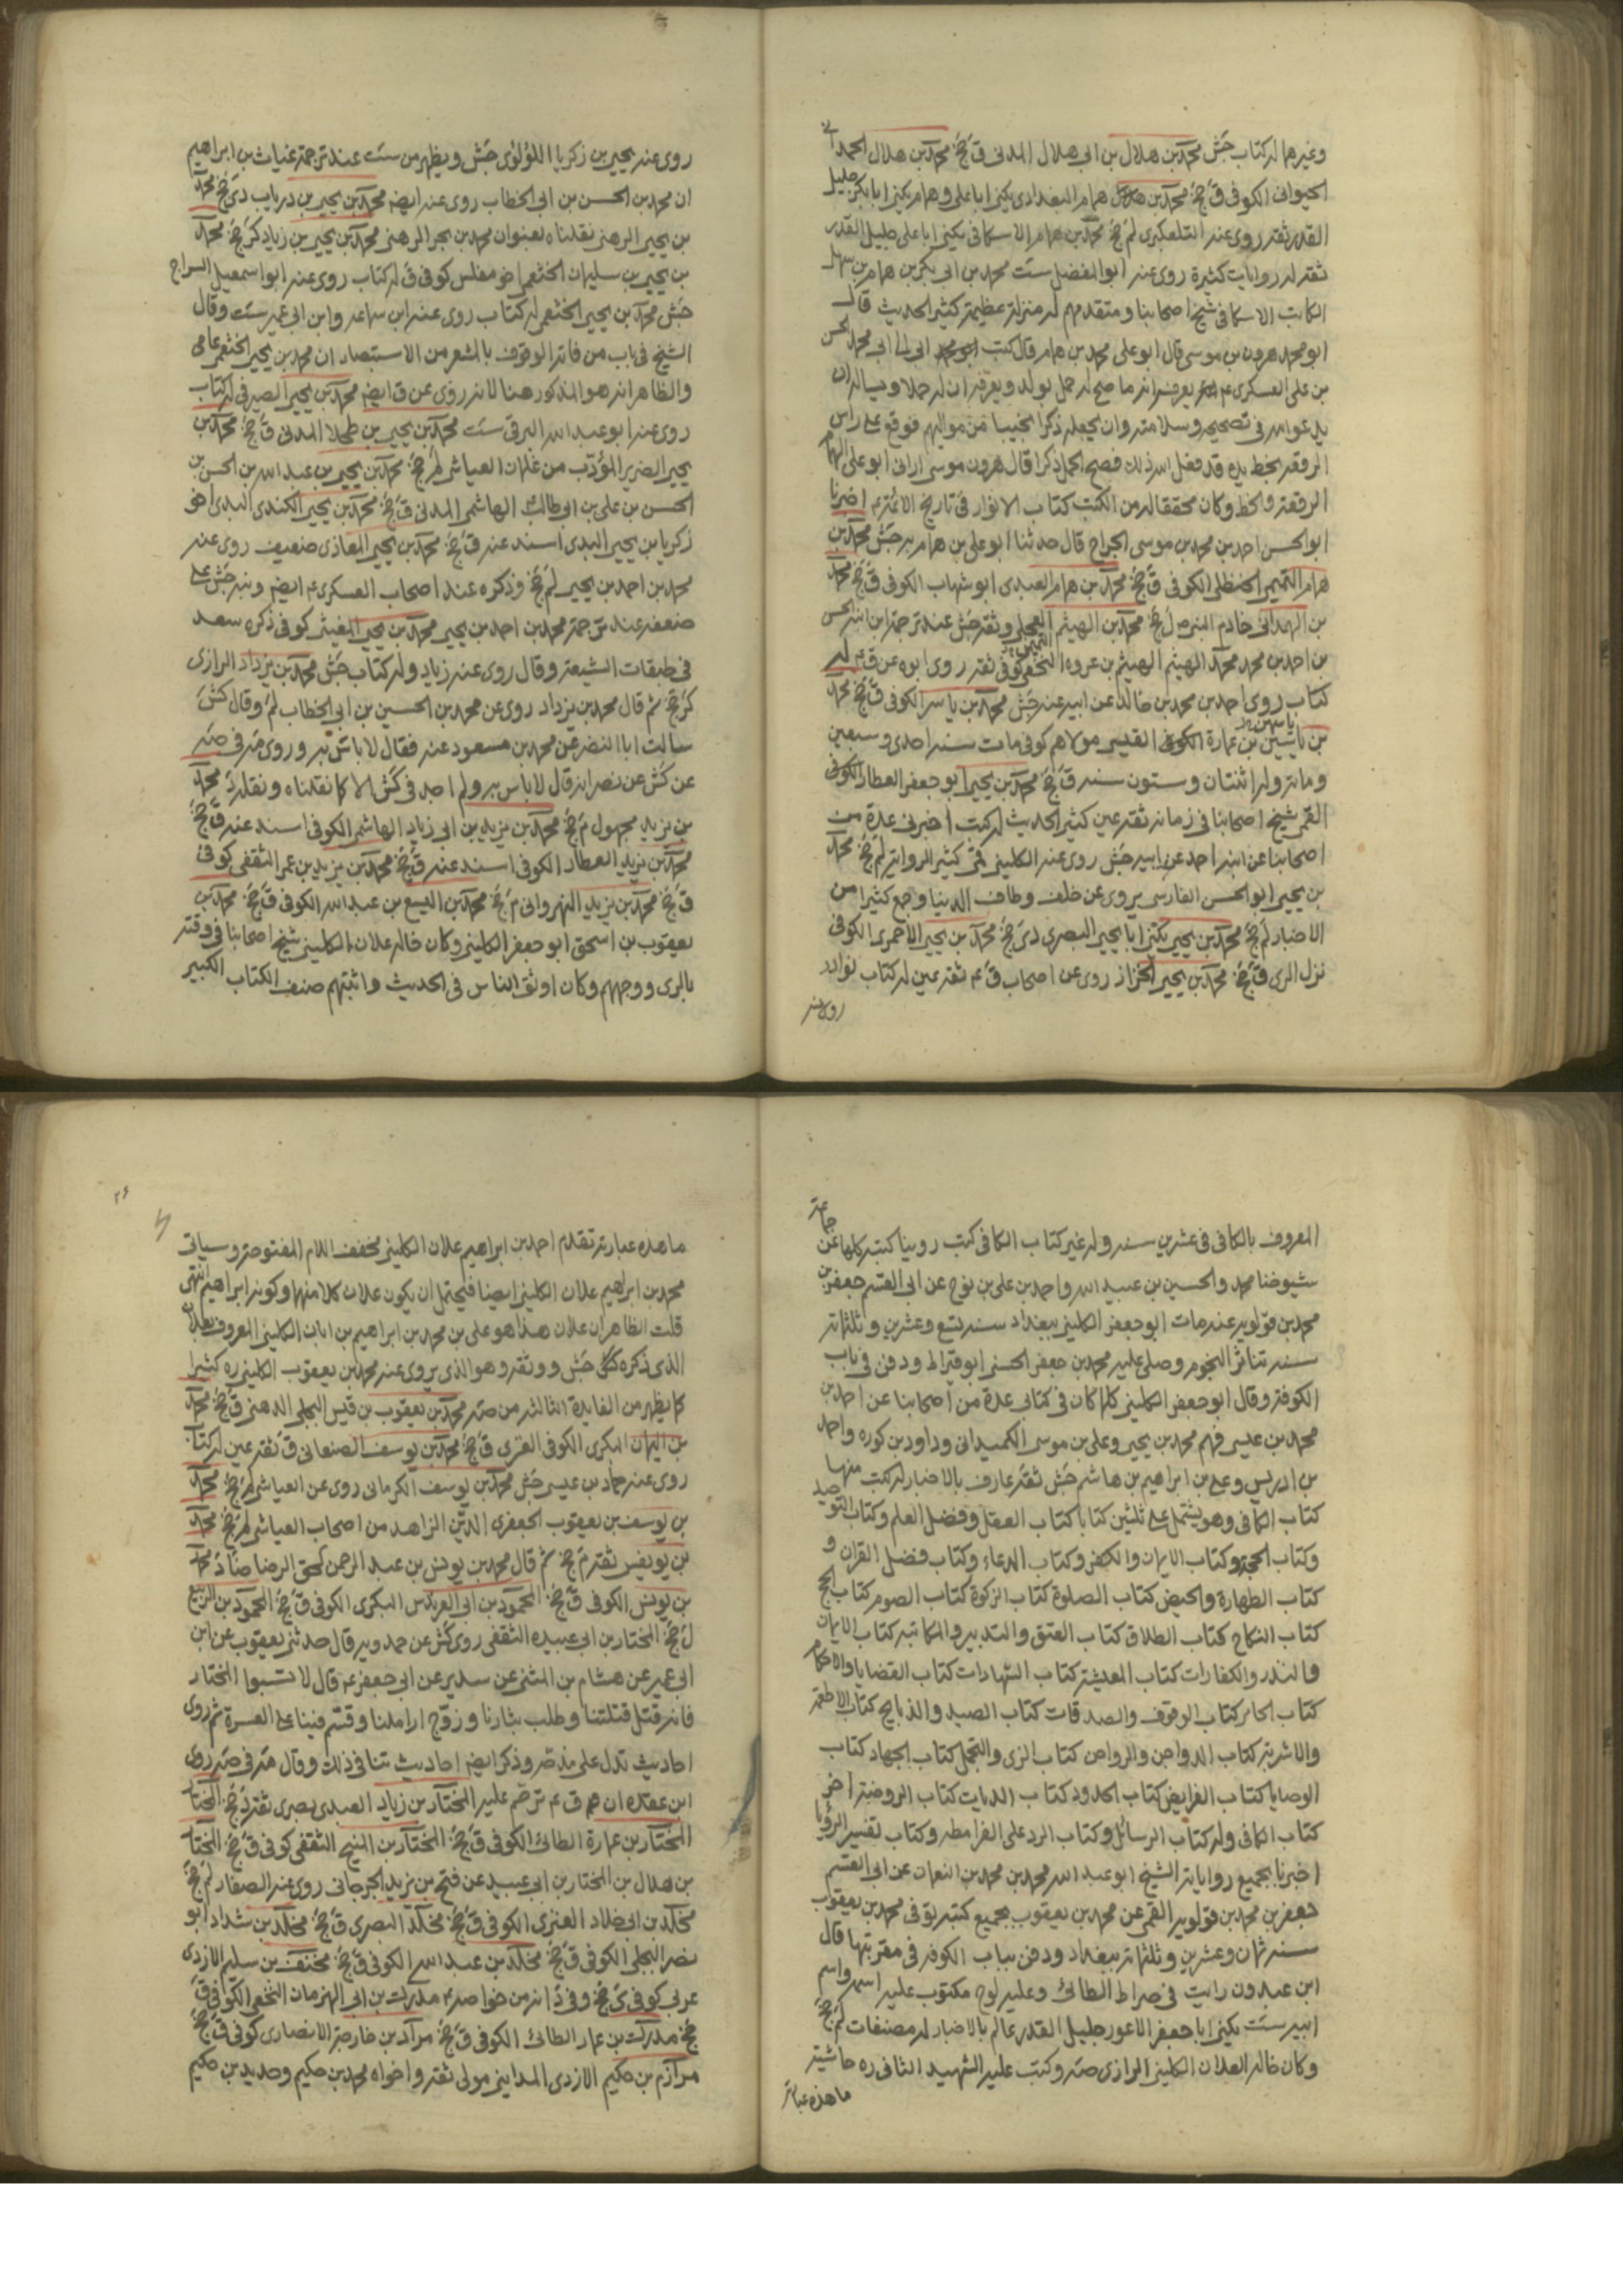 وغيرهما له كتاب جش محمد بن هلال بن ابي هلال المدني ق جخ محمد بن هلال الهمدا
الحيواني الكوفي ق جخ محمد بن همام البغدادي يكنى ابا علي وهمام يكنى ابا بكر جليل
القدر ثقة روى عنه التلعكبري لم جخ محمد بن همام الاسكافي يكنى ابا علي جليل القدر
ثقة له روايات كثيرة روى عنه ابو المفضل ست محمد بن ابي بكر بن همام بن سهيل
الكاتب الاسكافي شيخ اصحابنا ومتقدمهم له منزلة عظيمة كثير الحديث قال
ابو محمد هرون بن موسى قال ابو علي محمد بن همام قال كتب ابي الى ابي محمد الحسن
بن علي العسكري ع يعرفه انه ما صح له حمل بولد ويعرفه ان له حملا ويساله ان
يدعو الله في تصحيحه وسلامته وان يجعله ذكرا نجيبا من مواليهم فوقع على راس
الرقعة بخط يده قد فعل الله ذلك فصح الحمل ذكرا قال هرون بن موسى اراني ابو علي بن همام
الرقعة والخط وكان محققا له من الكتب كتاب الانوار في تاريخ الائمة ع اخبرنا
ابو الحسن احمد بن محمد بن موسى الجراح قال حدثنا ابو علي بن همام به جش محمد بن
همام التميمي الحنظلي الكوفي ق جخ محمد بن همام العبدي ابو شهاب الكوفي ق جخ محمد
بن الهمداني خادم النبي ص ل جخ محمد بن الهيثم العجلي وثقه جش عند ترجمة ابن ابنه الحسن
بن احمد بن محمد محمد بن الهيثم بن عروه التميمي كوفي ثقة روى ابوه عن ق ع له
كتاب روى احمد بن محمد بن خالد عن ابيه عنه جش محمد بن ياسر الكوفي ق جخ محمد
بن ياسين بن عمارة القيسي مولاهم كوفي مات سنة احدى وسبعين
ومائة وله اثنتان وستون سنة ق جخ محمد بن يحيى ابو جعفر العطار
القمي شيخ اصحابنا في زمانه ثقة عين كثير الحديث له كتب اخبرني عدة من
اصحابنا عن ابنه احمد عن ابيه جش روى عنه الكليني قمي كثير الرواية لم جخ محمد
بن يحيى ابو الحسن الفارسي يروي عن خلف وطاف الدنيا وجمع كثيرا من
الاخبار لم جخ محمد بن يحيى يكنى ابا يحيى البصري دى جخ محمد بن يحيى الاحمري الكوفي
نزل الري ق جخ محمد بن يحيى الخزاز روى عن اصحاب ق ع ثقة عين له كتاب نوادر
روى عنه
روى عنه يحيى بن زكريا اللؤلؤي جش ويظهر من ست عند ترجمة غياث بن ابراهيم
ان محمد بن الحسن بن ابي الخطاب روى عنه ايضم محمد بن يحيى بن درياب دى جخ محمد
بن يحيى الرهني نقلناه بعنوان محمد بن بحر الرهني محمد بن يحيى بن زياد كر جخ محمد
بن يحيى بن سليمان الخثعمي اخو مغلس كوفي ق له كتاب روى عنه ابو اسمعيل السراج
جش محمد بن يحيى الخثعمي له كتاب روى عنه ابن سماعه وابن ابي عمير ست وقال
الشيخ في باب من فاته الوقوف بالمشعر من الاستبصار ان محمد بن يحيى الخثعمي عامي
والظاهر انه هو المذكور هنا لانه روى عن ق ايضم محمد بن يحيى الصيرفي له كتاب
روى عنه ابو عبد الله البرقي ست محمد بن يحيى بن طحلا المدني ق جخ محمد بن
يحيى الضرير المؤدب من غلمان العياشي لم جخ محمد بن يحيى بن عبد الله بن الحسن بن
الحسن بن علي بن ابي طالب الهاشمي المدني ق جخ محمد بن يحيى الكندي البدي اخو
زكريا بن يحيى البدي اسند عنه ق جخ محمد بن يحيى المعاذي ضعيف روى عنه
محمد بن احمد بن يحيى لم جخ وذكره عند اصحاب العسكري ع ايضم ونبه جش على
ضعفه عند ترجمة محمد بن احمد بن يحيى محمد بن يحيى المغيثي كوفي ذكره سعد
في طبقات الشيعة وقال روى عنه زياد وله كتاب جش محمد بن يزداد الرازي
كر جخ ثم قال محمد بن يزداد روى عن محمد بن الحسين بن ابي الخطاب لم وقال كش
سالت ابا النضر عن محمد بن مسعود عنه فقال لا باس به وروى مه في صه
عن كش عن نصر انه قال لا باس به ولم اجد في كش الا كما نقلناه ونقله د محمد
بن يزيد مجهول م جخ محمد بن يزيد بن ابي زياد الهاشمي الكوفي اسند عنه ق جخ
محمد بن يزيد العطار الكوفي اسند عنه ق جخ محمد بن يزيد بن عمر الثقفي كوفي
ق جخ محمد بن يزيد النهرواني م جخ محمد بن اليسع بن عبد الله الكوفي ق جخ محمد بن
يعقوب بن اسحق ابو جعفر الكليني وكان خاله علان الكليني شيخ اصحابنا في وقته
بالري ووجههم وكان اوثق الناس في الحديث واثبتهم صنف الكتاب الكبير
المعروف بالكافي في عشرين سنة وله غير كتاب الكافي كتب روينا كتبه كلها عن جماعة
شيوخنا محمد والحسين بن عبيد الله واحمد بن علي بن نوح عن ابي القسم جعفر بن
محمد بن قولويه عنه مات ابو جعفر الكليني ببغداد سنة تسع وعشرين وثلثمائة
سنة تناثر النجوم وصلى عليه محمد بن جعفر الحسني ابو قيراط ودفن في باب
الكوفة وقال ابو جعفر الكليني كلما كان في كتابي عدة من اصحابنا عن احمد بن
محمد بن عيسى فهم محمد بن يحيى وعلي بن موسى الكميداني وداود بن كوره واحمد
بن ادريس وعلي بن ابراهيم بن هاشم جش ثقة عارف بالاخبار له كتب منها
كتاب الكافي وهو يشتمل على ثلثين كتابا كتاب العقل وفضل العلم وكتاب التوحيد
وكتاب الحجة وكتاب الايمان والكفر وكتاب الدعاء وكتاب فضل القران و
كتاب الطهارة والحيض كتاب الصلوة كتاب الزكوة كتاب الصوم كتاب الحج
كتاب النكاح كتاب الطلاق كتاب العتق والتدبير والمكاتبة كتاب الايمان
والنذر والكفارات كتاب المعيشة كتاب الشهادات كتاب القضايا والاحكام
كتاب الجنائز كتاب الوقوف والصدقات كتاب الصيد والذبايح كتاب الاطعمة
والاشربة كتاب الدواجن والرواجن كتاب الزي والتجمل كتاب الجهاد كتاب
الوصايا كتاب الفرايض كتاب الحدود كتاب الديات كتاب الروضة اخر
كتاب الكافي وله كتاب الرسائل وكتاب الرد على القرامطة وكتاب تفسير الرؤيا
اخبرنا بجميع رواياته الشيخ ابو عبد الله محمد بن محمد بن النعمان عن ابي القسم
جعفر بن محمد بن قولويه القمي عن محمد بن يعقوب بجميع كتبه توفى محمد بن يعقوب
سنة ثمان وعشرين وثلثمائة ببغداد ودفن بباب الكوفة في مقبرتها قال
ابن عبدون رايت في صراط الطائي وعليه لوح مكتوب عليه اسمه واسم
ابيه ست يكنى ابا جعفر الاعور جليل القدر عالم بالاخبار له مصنفات لم جخ
وكان خاله العلان الكليني الرازي صه وكتب عليه الشهيد الثاني ره حاشية
ما هذه عبارته
٢۶
ما هذه عبارته تقدم احمد بن ابراهيم علان الكليني مخفف اللام المفتوحة وسياتي
محمد بن ابراهيم علان الكليني ايضا فيحتمل ان يكون علان كلا منهما وكونه ابراهيم انتهى
قلت الظاهر ان علان هذا هو علي بن محمد بن ابراهيم بن ابان الكليني المعروف بعلان
الذي ذكره جش ووثقه وهو الذي يروي عنه محمد بن يعقوب الكليني ره كثيرا
كما يظهر من الفايدة الثالثة من صه محمد بن يعقوب بن قيس البجلي الدهني ق جخ محمد
بن اليمان البكري الكوفي الغزي ق جخ محمد بن يوسف الصنعاني ق ثقة عين له كتاب
روى عنه حماد بن عيسى جش محمد بن يوسف الكرماني روى عن العياشي لم جخ محمد
بن يوسف بن يعقوب الجعفري الدين الزاهد من اصحاب العياشي لم جخ محمد
بن يونس ثقة م جخ ثم قال محمد بن يونس بن عبد الرحمن لحق الرضا ضا د محمد
بن يونس الكوفي ق جخ المحمود بن ابي العريس البكري الكوفي ق جخ المحمود بن الربيع
ل جخ المختار بن ابي عبيده الثقفي روى كش عن حمدويه قال حدثني يعقوب عن ابن
ابي عمير عن هشام بن المثنى عن سدير عن ابي جعفر ع قال لا تسبوا المختار
فانه قتل قتلتنا وطلب بثارنا وزوج اراملنا وقسم فينا على العسرة ثم روى
احاديث تدل على مذمته وذكر ايضم احاديث تنافي ذلك وقال مه في صه روى
ابن عقده ان ق ع ترحم عليه المختار بن زياد العبدي بصري ثقة د جخ المختا
المختار بن عمارة الطائي الكوفي ق جخ المختار بن المنيح الثقفي كوفي ق جخ المختا
بن هلال بن المختار بن ابي عبيد عن فتح بن يزيد الجرجاني روى عنه الصفار لم جخ
مخلد بن ابي خلاد العنزي الكوفي ق جخ مخلد البصري ق جخ مخلد بن شداد ابو
نصر البجلي الكوفي ق جخ مخلد بن عبد الله الكوفي ق جخ مخنف بن سليم الازدي
عربي كوفي ى جخ وفي د انه من خواصه ع مدرك بن ابي الهزهاز النخعي الكوفي ق
جخ مدرك بن عمار الطائي الكوفي ق جخ مراد بن خارجة الانصاري كوفي ق جخ
مرازم بن حكيم الازدي المدايني مولى ثقة واخواه محمد بن حكيم وحديد بن حكيم